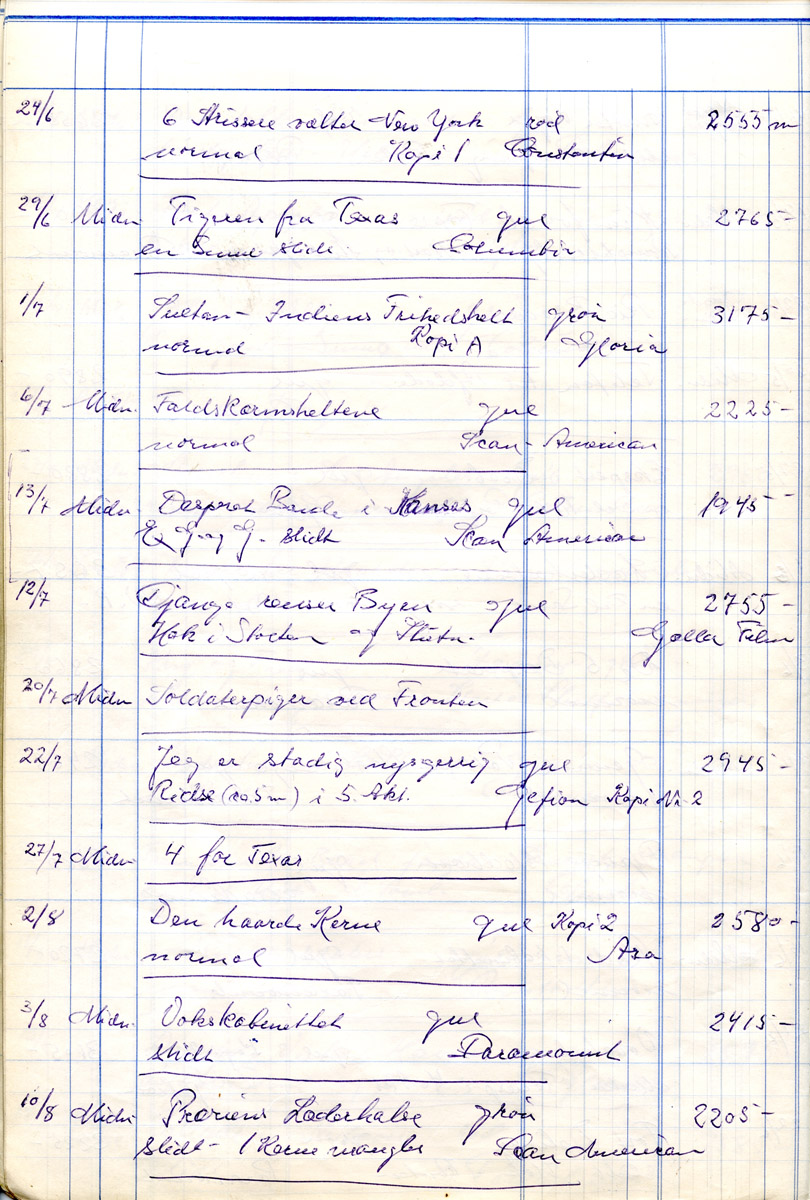 24/6 6 Strissere vælter New York rød 2555 m
normal Kopi 1 Constantin
29/6 Midn. Tigeren fra Texas gul 2765-
en Smule slidt. Columbia
1/7 Sultan - Indiens Frihedshelt grøn 3175-
normal Kopi A Gloria
6/7 Midn. Faldskærmsheltene gul 2225-
normal Scan-American
13/7 Midn. Desperat Bande i Kansas gul 1945-
G. og G. slidt Scan American
12/7 Django renser Byen gul 2755-
Hak i Starten og Slutn. Golla Film
20/7 Midn Soldaterpiger ved Fronten
22/7 Jeg er stadig nysgerrig gul 2945-
Ridse (ca. 5 m) i 5. Akt. Gefion Kopi Nr. 2
27/7 Midn 4 for Texas
2/8 Den haarde Kerne gul Kopi 2 2580-
normal Asa
3/8 Midn. Vokskabinettet gul 2415-
slidt Paramount
10/8 Midn Præriens Læderhalse grøn 2205-
slidt - 1 Kerne mangler Scan American